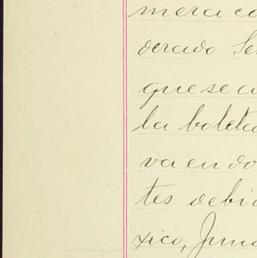 mera co
derado Se
que se a
la boleta
va en do
tes debi
xico, Juni